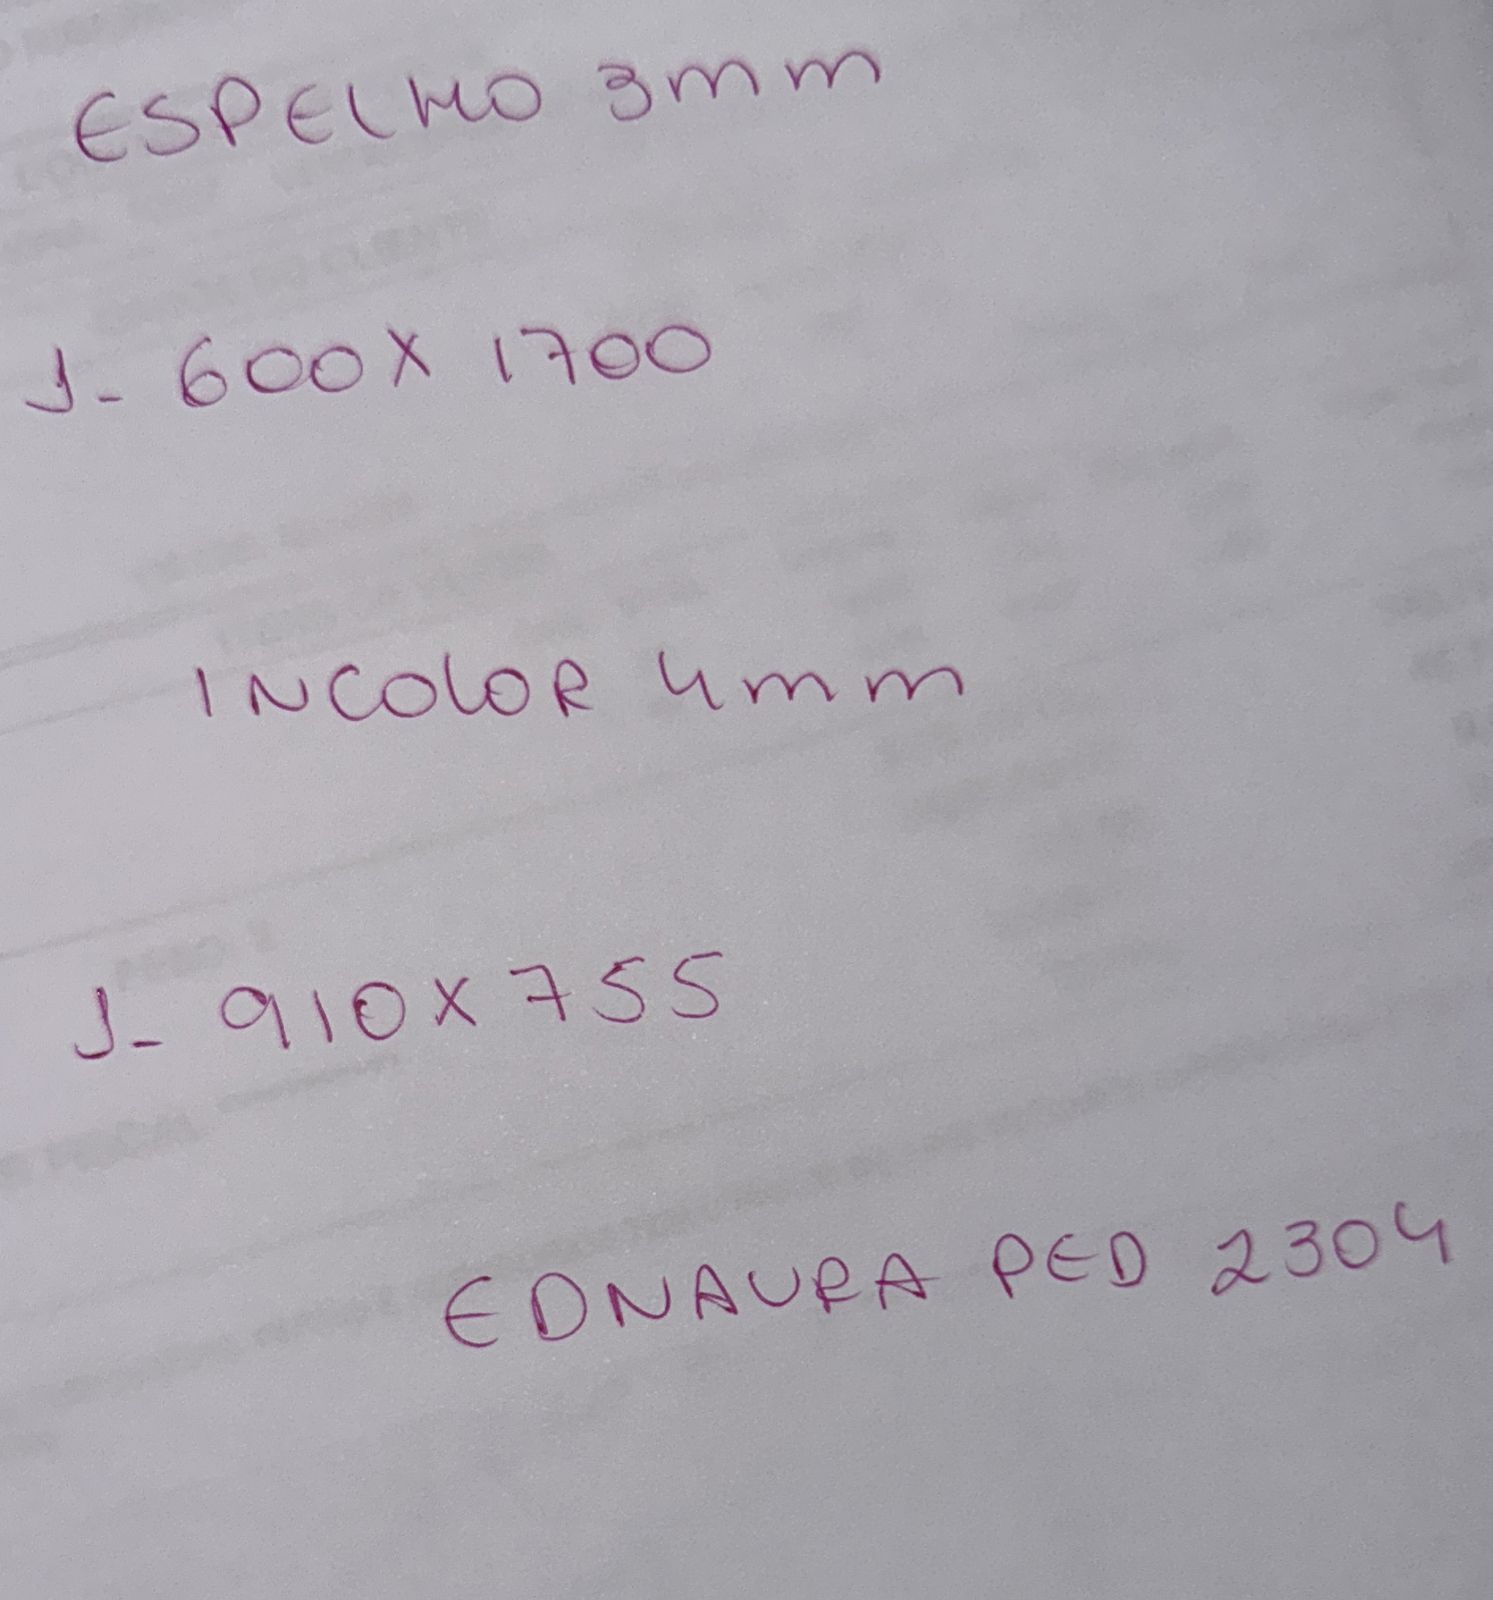 ESPELHO 3mm
1- 600X 1700
INCOLOR 4mm
1- 910X755
EDNAURA PED 2304